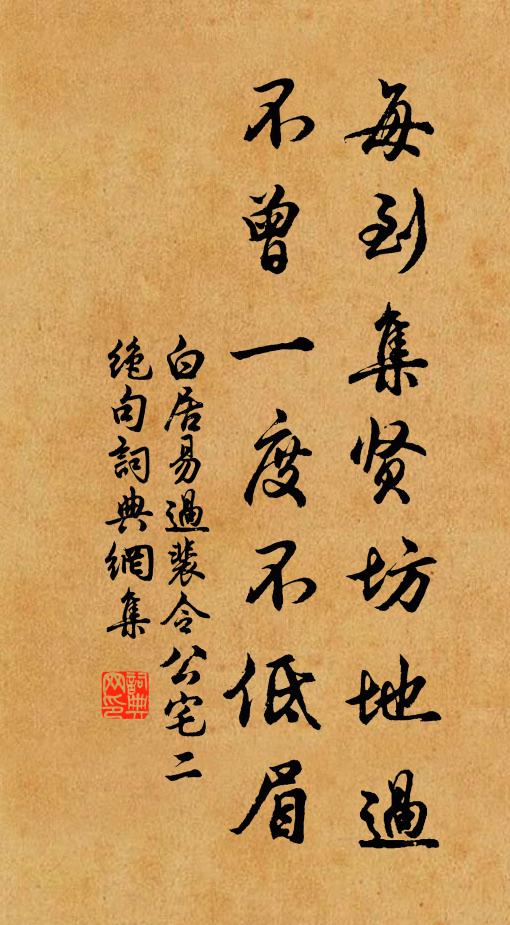 每到集贤坊地過
不曾一度不低眉
白居易過裴令公宅二
絶句詞典網集
詞典网印